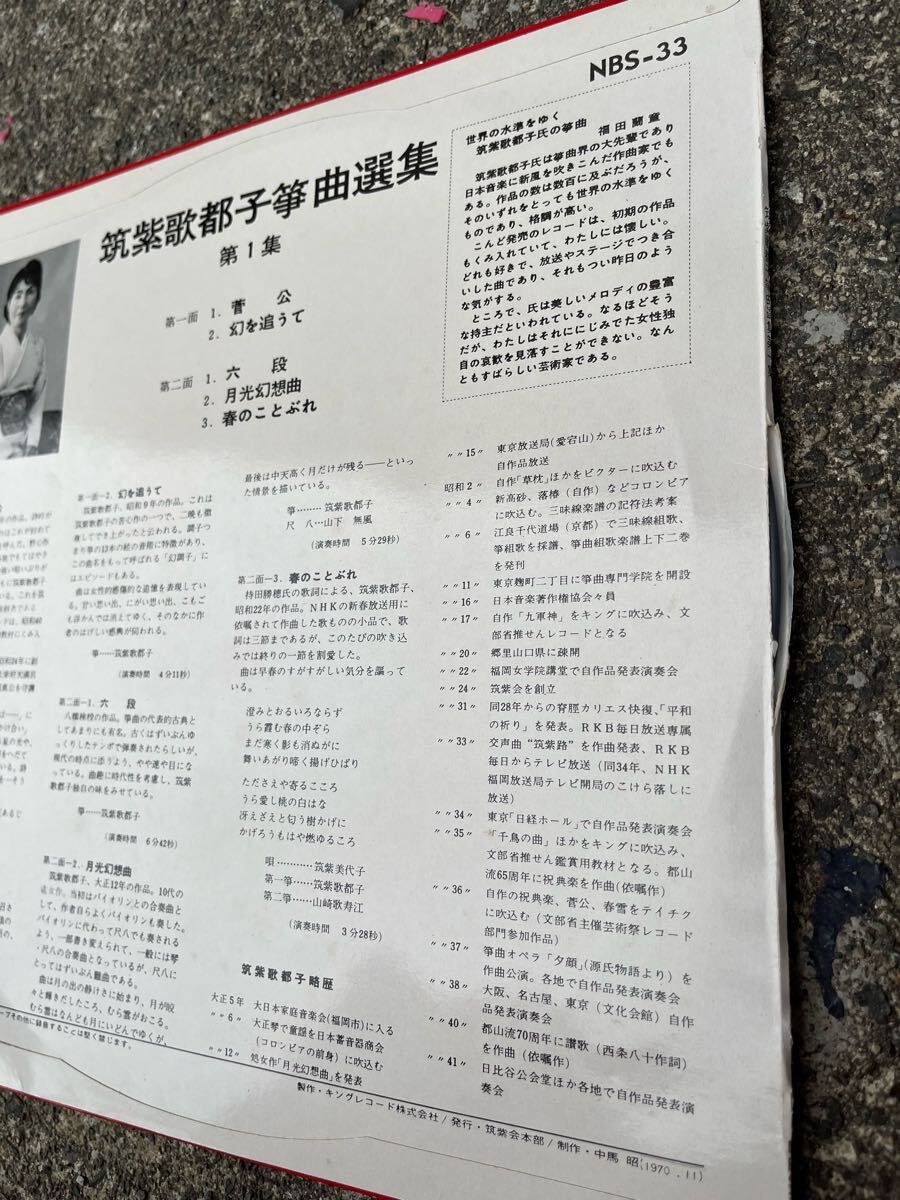 NBS-33
筑紫歌都子箏曲選集
第1集
第一面 1. 菅 公
2. 幻を追うて
第二面 1. 六 段
2. 月光幻想曲
3. 春のことぶれ
世界の水準をゆく
筑紫歌都子氏の箏曲
福田蘭童
筑紫歌都子氏は箏曲界の大先輩であり
日本音楽に新風を吹きこんだ作曲家でも
ある。作品の数は数百に及ぶだろうが、
そのいずれをとっても世界の水準をゆく
ものであり、格調が高い。
こんど発売のレコードは、初期の作品
もくみ入れていて、わたしには懐しい。
どれも好きで、放送やステージでつき合
いした曲であり、それもつい昨日のよう
な気がする。
ところで、氏は美しいメロディの豊富
な持主だといわれている。なるほどそう
だが、わたしはそれににじみでた女性独
自の哀歓を見落すことができない。なん
ともすばらしい芸術家である。
第一面-2. 幻を追うて
筑紫歌都子、昭和9年の作品。これは
筑紫歌都子の苦心作の一つで、二晩も徹
夜してでき上がったと云われる。調子つ
まり箏の13本の絃の音術に特徴があり、
この曲名をもって呼ばれる「幻調子」に
はエピソードもある。
曲は女性的感傷的な追憶を表現してい
る。甘い思い出、にがい思い出、こもご
も浮かんでは消えてゆく、そのなかに作
者のはげしい感興が伺われる。
箏……筑紫歌都子
(演奏時間 4分11秒)
第二面-1. 六 段
八橋検校の作品。箏曲の代表的古典と
してあまりにも有名。古くはずいぶんゆ
っくりしたテンポで弾奏されたらしいが、
現代の時点に添うよう、やや速や目にな
っている。曲趣に時代性を考慮し、筑紫
歌都子独自の味をみせている。
箏……筑紫歌都子
(演奏時間 6分42秒)
第二面-2. 月光幻想曲
筑紫歌都子、大正12年の作品。10代の
処女作。当初はバイオリンとの合奏曲と
して、作者自らよくバイオリンも奏した。
バイオリンに代わって尺八でも奏される
よう、一部書き変えられて、一般には琴
・尺八の合奏曲となっているが、尺八に
とってはずいぶん難曲である。
曲は月の出の静けさに始まり、月が皎
々と輝きだしたころ、むら雲がおこる。
むら雲はなんども月にいどんでゆくが、
最後は中天高く月だけが残る——といっ
た情景を描いている。
箏………筑紫歌都子
尺 八…山下 無風
(演奏時間 5分29秒)
第二面-3. 春のことぶれ
持田勝穂氏の歌詞による、筑紫歌都子、
昭和22年の作品。NHKの新春放送用に
依嘱されて作曲した歌ものの小品で、歌
詞は三節まであるが、このたびの吹き込
みでは終りの一節を割愛した。
曲は早春のすがすがしい気分を謳って
いる。
澄みとおるいろならず
うら霞む春の中ぞら
まだ寒く影も消ぬがに
舞いあがり啼く揚げひばり
たださえや寄るこころ
うら愛し桃の白はな
冴えざえと匂う樹かげに
かげろうもはや燃ゆるころ
唄…………筑紫美代子
第一箏……筑紫歌都子
第二箏……山崎歌寿江
(演奏時間 3分28秒)
筑紫歌都子略歴
大正5年 大日本家庭音楽会(福岡市)に入る
〃〃6〃 大正琴で童謡を日本蓄音器商会
(コロンビアの前身)に吹込む
〃〃12〃 処女作「月光幻想曲」を発表
〃〃15〃 東京放送局(愛宕山)から上記ほか
自作品放送
昭和2〃 自作「草枕」ほかをビクターに吹込む
〃〃4〃 新高砂、落椿(自作)などコロンビア
に吹込む。三味線楽譜の記符法考案
〃〃6〃 江良千代道場(京都)で三味線組歌、
箏組歌を採譜、箏曲組歌楽譜上下二巻
を発刊
〃〃11〃 東京麹町二丁目に箏曲専門学院を開設
〃〃16〃 日本音楽著作権協会々員
〃〃17〃 自作「九軍神」をキングに吹込み、文
部省推せんレコードとなる
〃〃20〃 郷里山口県に疎開
〃〃22〃 福岡女学院講堂で自作品発表演奏会
〃〃24〃 筑紫会を創立
〃〃31〃 同28年からの脊髄カリエス快復、「平和
の祈り」を発表。RKB毎日放送専属
〃〃33〃 交声曲“筑紫路”を作曲発表、RKB
毎日からテレビ放送(同34年、NHK
福岡放送局テレビ開局のこけら落しに
放送)
〃〃34〃 東京「日経ホール」で自作品発表演奏会
〃〃35〃 「千鳥の曲」ほかをキングに吹込み、
文部省推せん鑑賞用教材となる。都山
流65周年に祝典楽を作曲(依嘱作)
〃〃36〃 自作の祝典楽、菅公、春雪をテイチク
に吹込む(文部省主催芸術祭レコード
部門参加作品)
〃〃37〃 箏曲オペラ「夕顔」(源氏物語より)を
作曲公演。各地で自作品発表演奏会
〃〃38〃 大阪、名古屋、東京(文化会館)自作
品発表演奏会
〃〃40〃 都山流70周年に讃歌(西条八十作詞)
を作曲(依嘱作)
〃〃41〃 日比谷公会堂ほか各地で自作品発表演
奏会
ープその他に録音することは堅く禁じます。
製作・キングレコード株式会社/発行・筑紫会本部/制作・中馬 昭(1970.11)